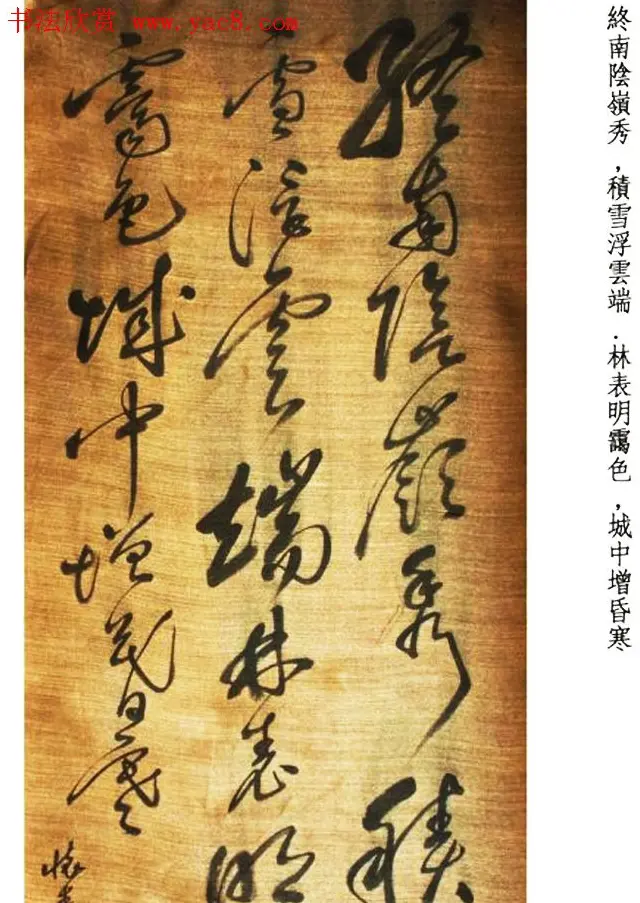 书法欣赏 www.yac8.com
終南陰嶺秀，積雪浮雲端．林表明靄色，城中增昏寒
終南陰嶺秀積
雪浮雲端林表明
霽色城中增暮日寒
懷素